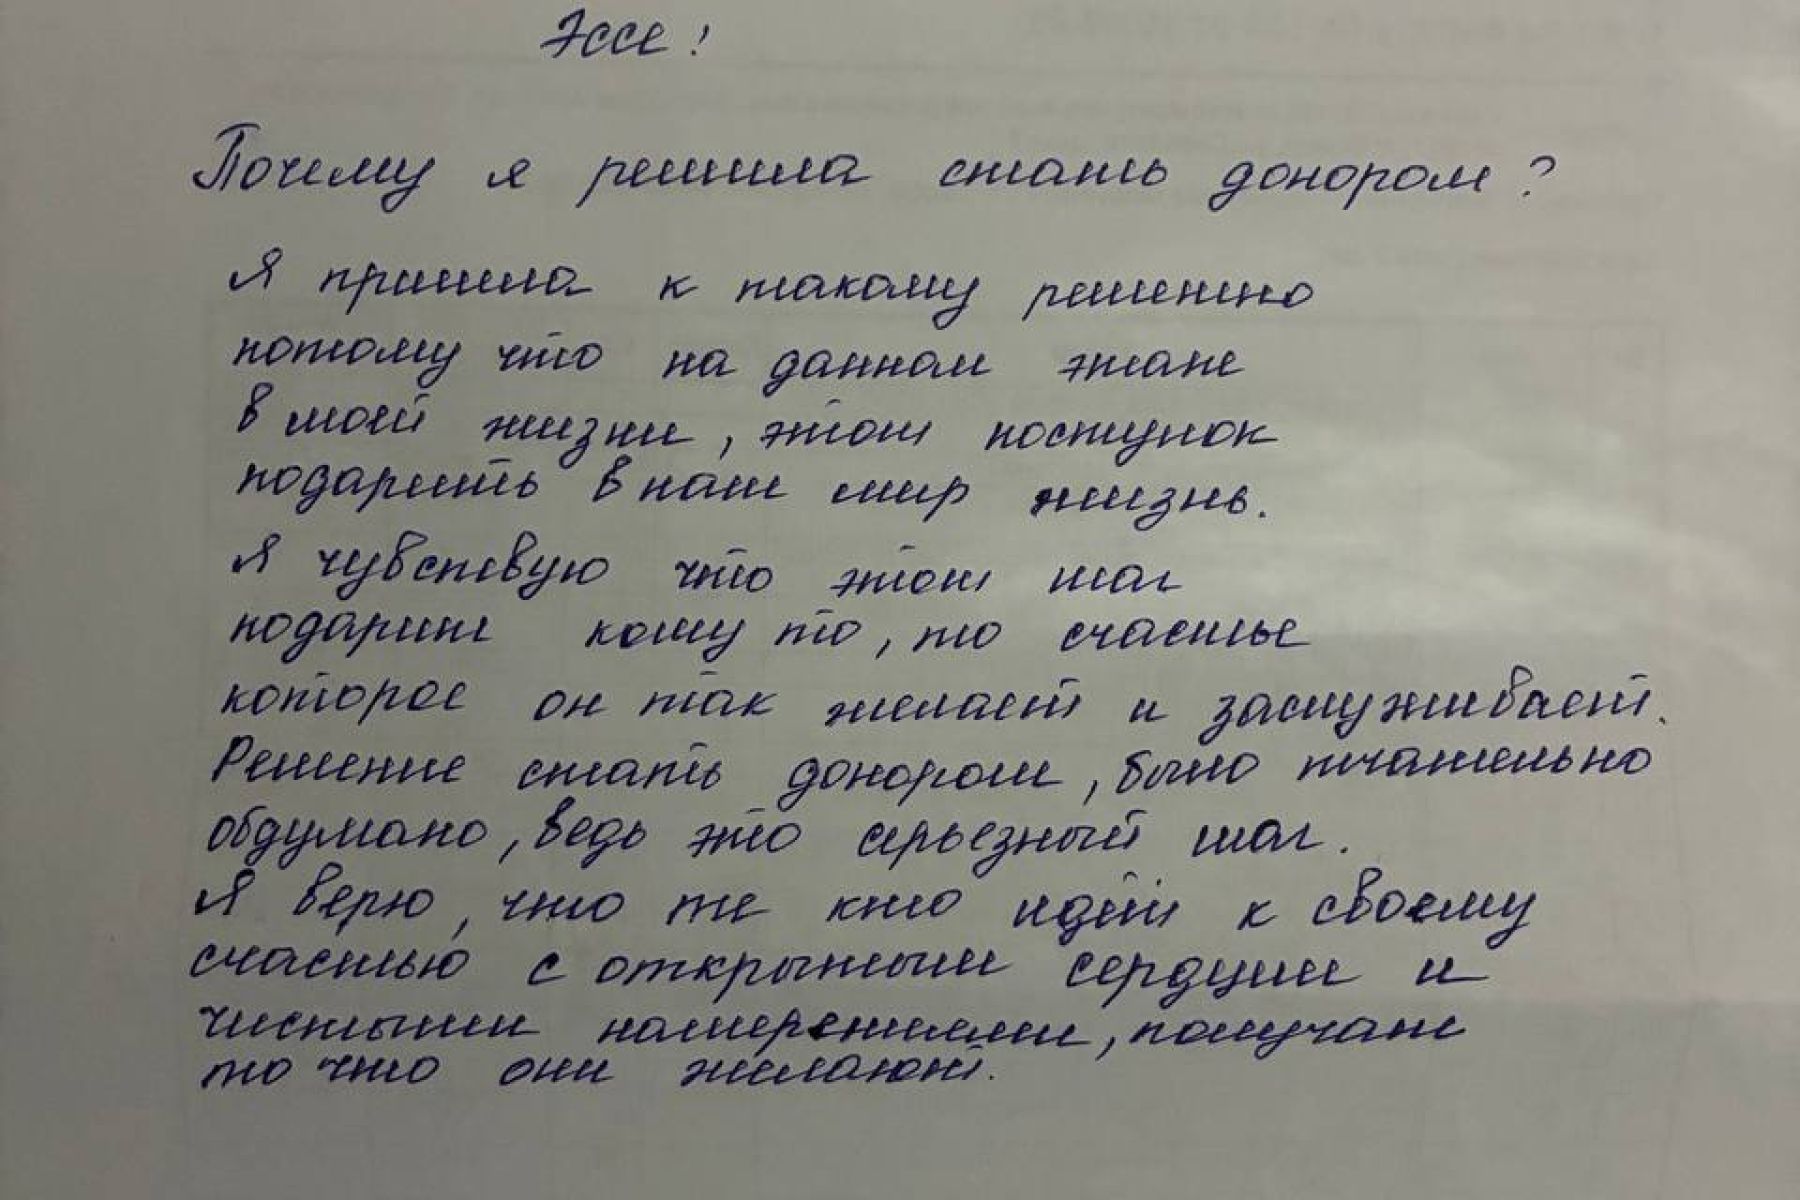 Эссе!
Почему я решила стать донором?
Я пришла к такому решению
потому что на данном этапе
в моей жизни, этот поступок
подарить в наш мир жизнь.
Я чувствую что этот шаг
подарит кому то, то счастье
которое он так желает и заслуживает.
Решение стать донором, было тчательно
обдумано, ведь это серьезный шаг.
Я верю, что те кто идёт к своему
счастью с открытыми сердцами и
чистыми намерениями, получат
то что они желают.